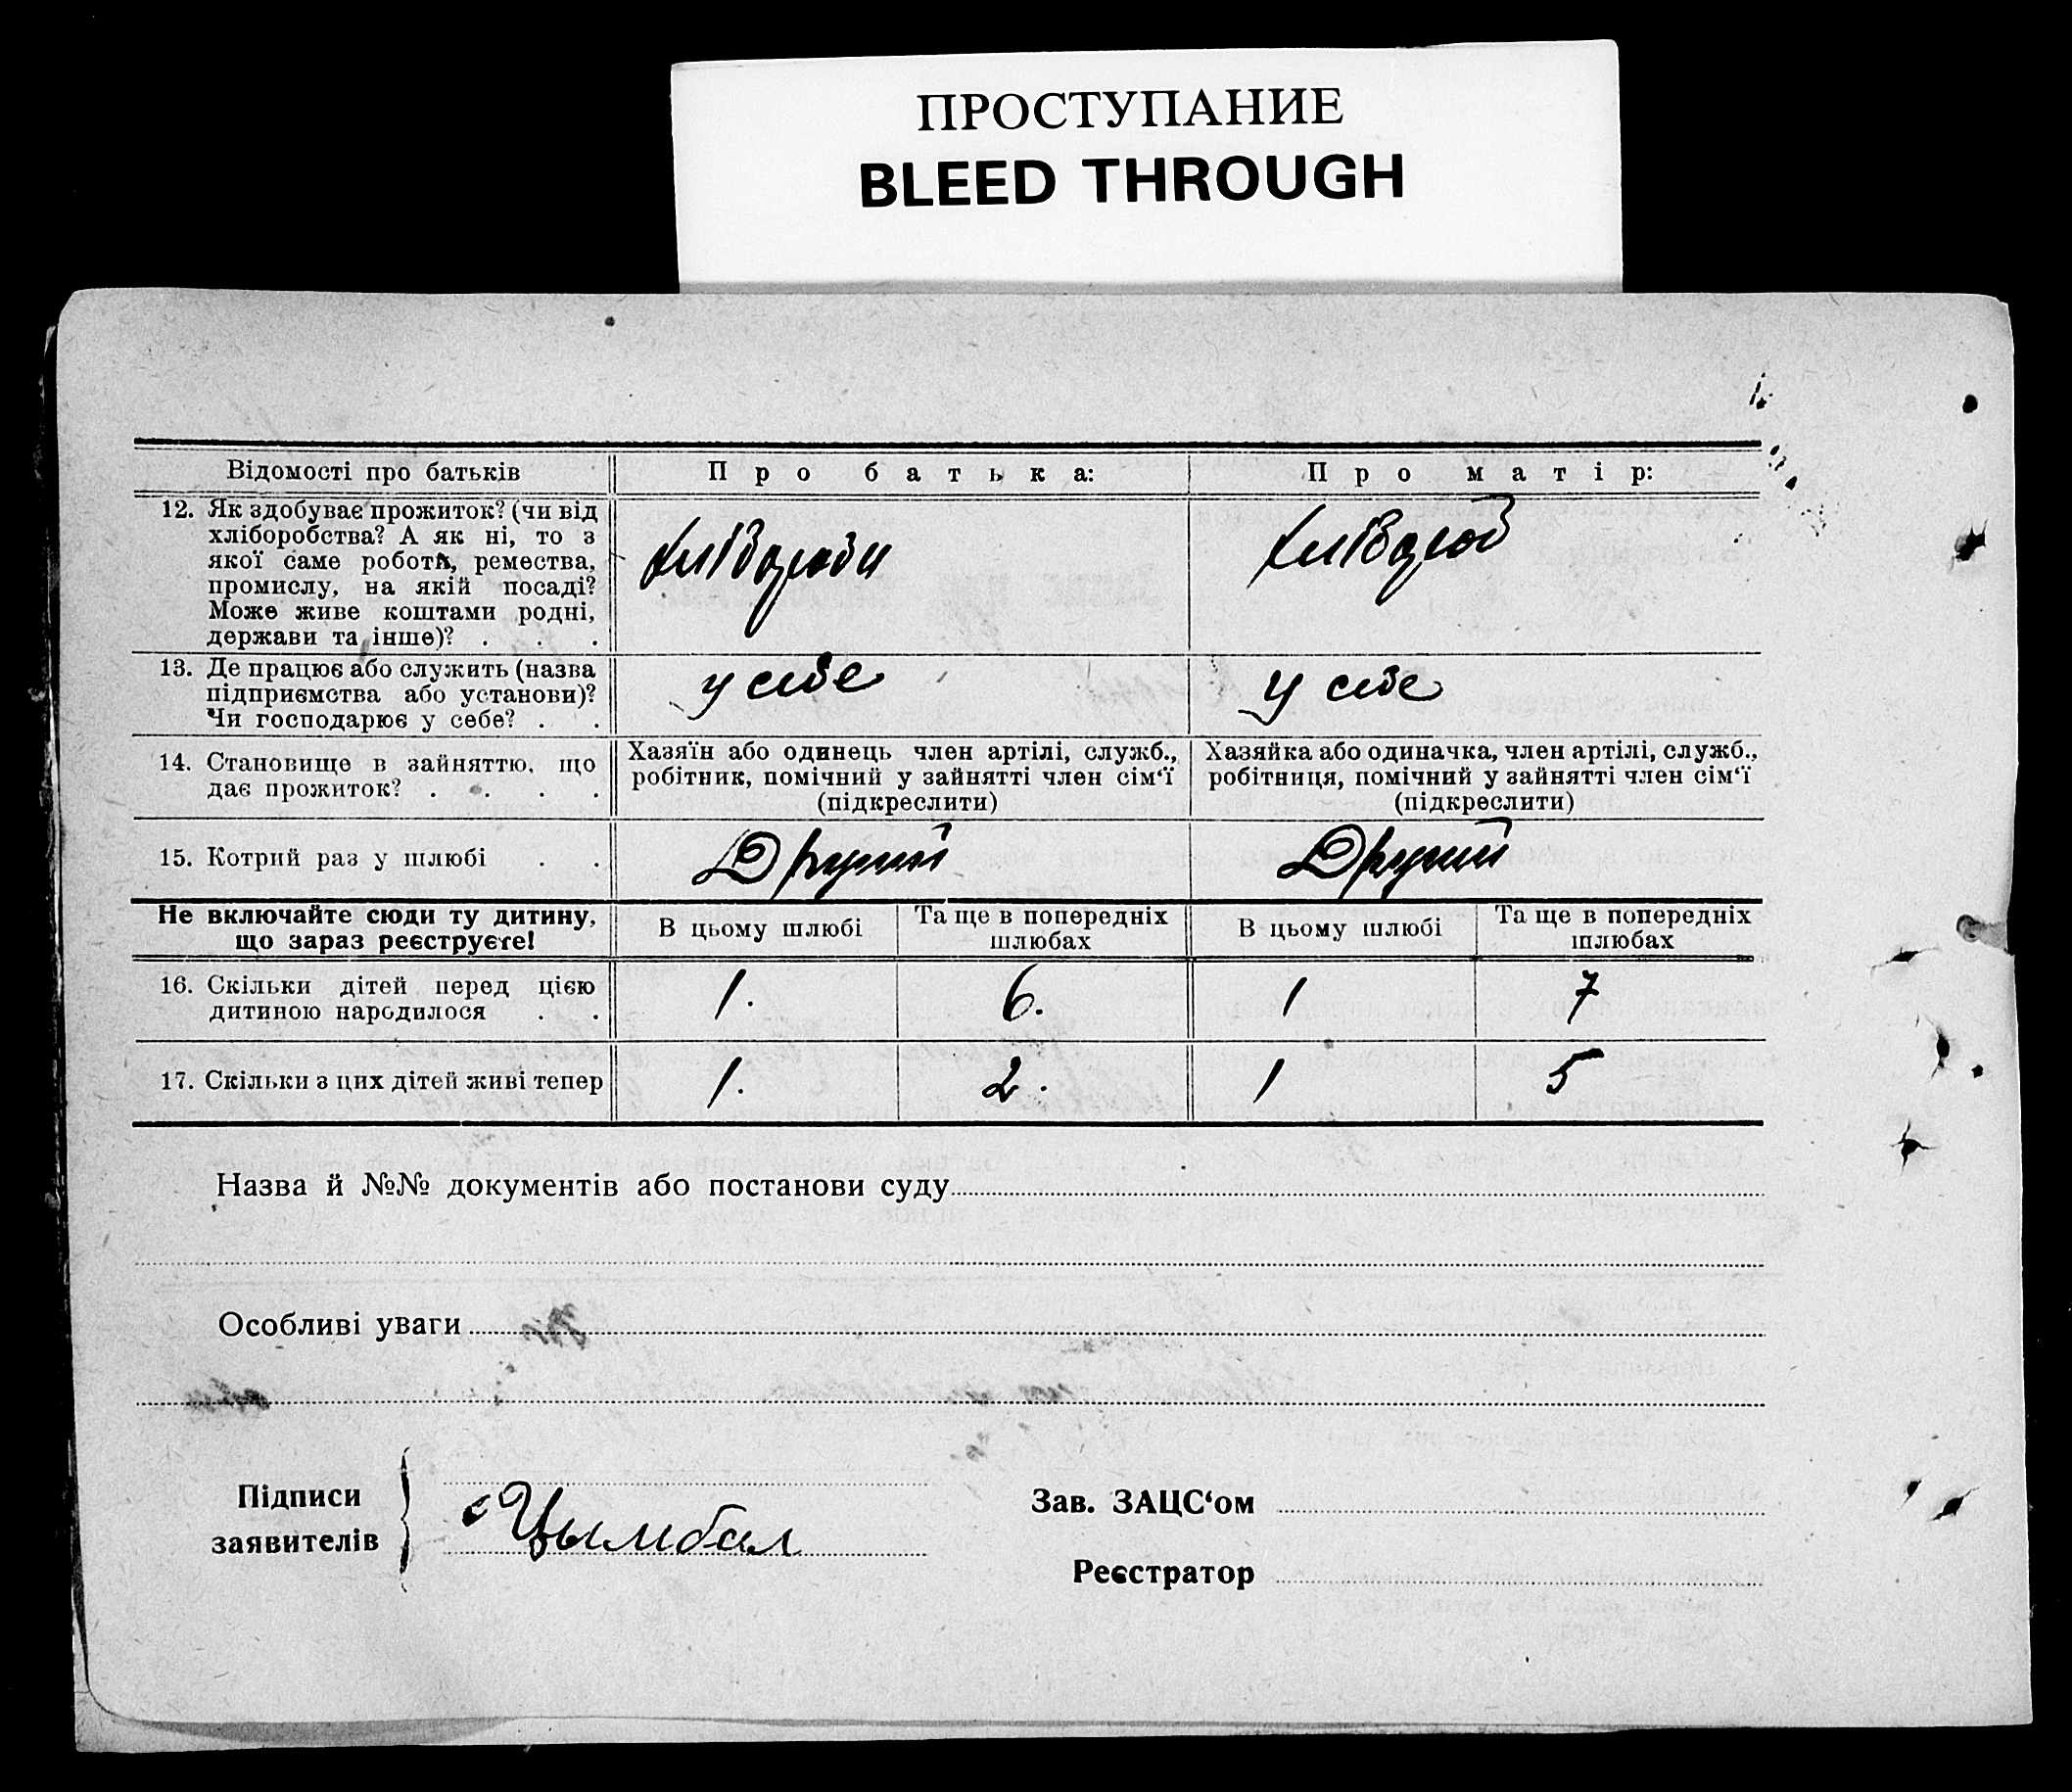 ПРОСТУПАНИЕ
BLEED THROUGH
Відомості про батьків
Про батька:
Про матір:
12. Як здобуває прожиток? (чи від
хліборобства? А як ні, то з
якої саме роботи, ремества,
промислу, на якій посаді?
Може живе коштами родні,
держави та інше)? . . .
13. Де працює або служить (назва
підприємства або установи)?
Чи господарює у себе? . .
у себе
у себе
14. Становище в зайняттю, що
дає прожиток? . . . .
Хазяїн або одинець член артілі, служб.,
робітник, помічний у зайнятті член сім‘ї
(підкреслити)
Хазяйка або одиначка, член артілі, служб.,
робітниця, помічний у зайнятті член сім‘ї
(підкреслити)
15. Котрий раз у шлюбі . .
Другий
Другий
Не включайте сюди ту дитину,
що зараз реєструєте!
В цьому шлюбі
Та ще в попередніх
шлюбах
В цьому шлюбі
Та ще в попередніх
шлюбах
16. Скільки дітей перед цією
дитиною народилося . .
1.
6.
1
7
17. Скільки з цих дітей живі тепер
1.
2.
1
5
Назва й №№ документів або постанови суду
Особливі уваги
Підписи
заявителів
Цымбал
Зав. ЗАЦС‘ом
Реєстратор